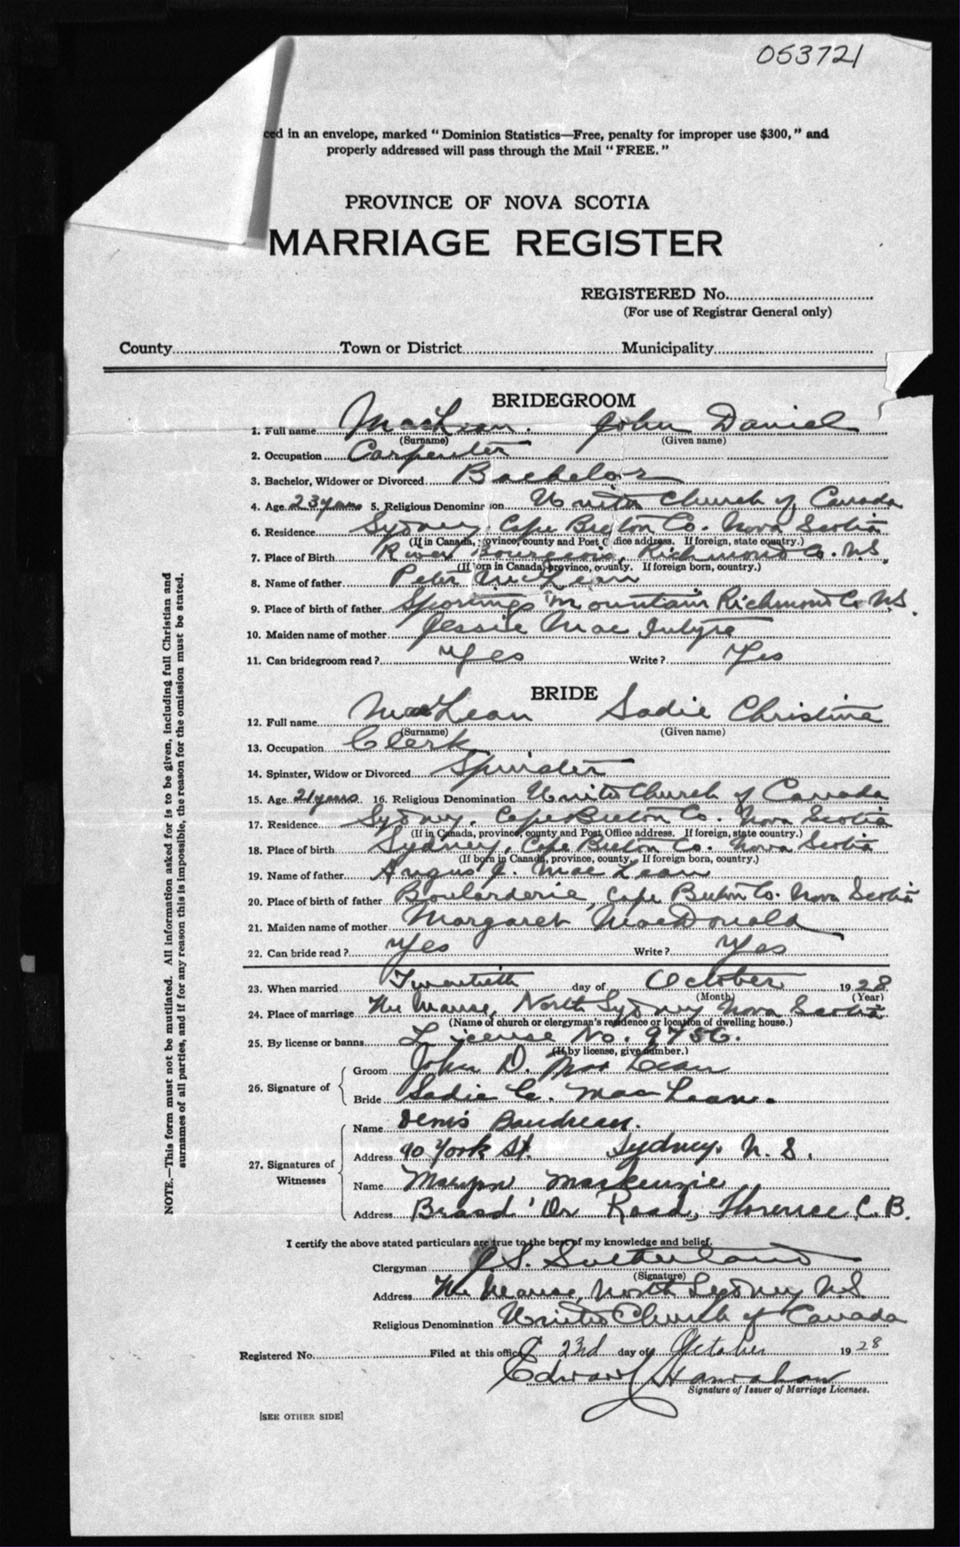 053721
ced in an envelope, marked "Dominion Statistics—Free, penalty for improper use $300," and
properly addressed will pass through the Mail "FREE."
PROVINCE OF NOVA SCOTIA
MARRIAGE REGISTER
REGISTERED No.
(For use of Registrar General only)
County Town or District Municipality
BRIDEGROOM
1. Full name MacLean. John Daniel
(Surname) (Given name)
2. Occupation Carpenter
3. Bachelor, Widower or Divorced Bachelor
4. Age 23 years 5. Religious Denomination United Church of Canada
6. Residence Sydney, Cape Breton Co. Nova Scotia
(If in Canada, province, county and Post Office address. If foreign, state country.)
7. Place of Birth River Bourgeois, Richmond Co. N.S.
(If born in Canada, province, county. If foreign born, country.)
8. Name of father Peter McLean
9. Place of birth of father Sportings Mountain Richmond Co N.S.
10. Maiden name of mother Jessie MacIntyre
11. Can bridegroom read? Yes Write? Yes
BRIDE
12. Full name MacLean Sadie Christina
(Surname) (Given name)
13. Occupation Clerk
14. Spinster, Widow or Divorced Spinster
15. Age 21 years 16. Religious Denomination United Church of Canada
17. Residence Sydney, Cape Breton Co. Nova Scotia
(If in Canada, province, county and Post Office address. If foreign, state country.)
18. Place of birth Sydney, Cape Breton Co. Nova Scotia
(If born in Canada, province, county. If foreign born, country.)
19. Name of father Angus J. MacLean
20. Place of birth of father Boularderie, Cape Breton Co. Nova Scotia
21. Maiden name of mother Margaret MacDonald
22. Can bride read? Yes Write? Yes
23. When married Twentieth day of October 1928
(Month) (Year)
24. Place of marriage The Manse, North Sydney Nova Scotia
(Name of church or clergyman's residence or location of dwelling house.)
25. By license or banns License No. 9756.
(If by license, give number.)
26. Signature of Groom John D. MacLean
Bride Sadie C. MacLean.
27. Signatures of Witnesses
Name Denis Boudreau.
Address 90 York St. Sydney. N.S.
Name MacKenzie
Address Brasd'Or Road, Florence C.B.
I certify the above stated particulars are true to the best of my knowledge and belief.
Clergyman J.S. Sutherland
(Signature)
Address The Manse, North Sydney N.S
Religious Denomination United Church of Canada
Registered No. Filed at this office 23rd day of October 1928
Edward Hanrahan
Signature of Issuer of Marriage Licenses.
[SEE OTHER SIDE]
NOTE.—This form must not be mutilated. All information asked for is to be given, including full Christian and
surnames of all parties, and if for any reason this is impossible, the reason for the omission must be stated.